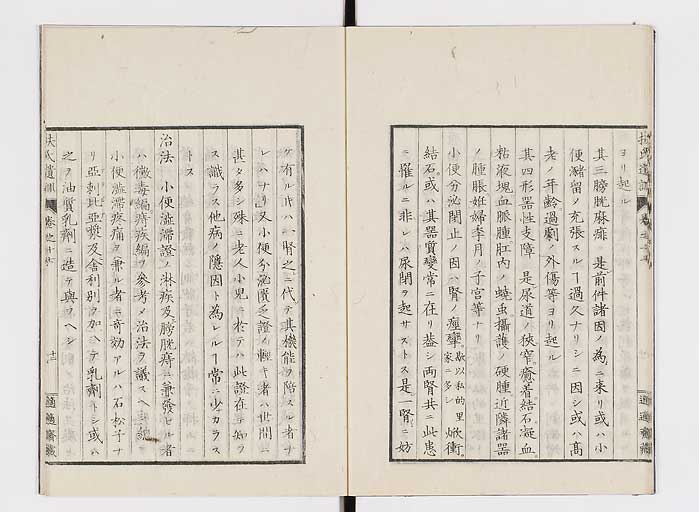 ヨリ起ル
其三膀胱麻痺 是前件諸因ノ為ニ来リ或ハ小
便瀦留ノ充張スルヿ過久ナリシニ因シ或ハ高
老ノ年齢過劇ノ外傷等ヨリ起ル
其四形器性支障 是尿道ノ狭窄癒着結石凝血
粘液塊血脈腫肛内ノ蟯虫攝護ノ硬腫近隣諸器
ノ腫脹妊婦李月ノ子宮等ナリ
小便分泌閉止ノ因ハ腎ノ痙攣歇以私的里家ニ多シ焮衝
結石或ハ其器質変常ニ在リ蓋シ両腎共ニ此患
ニ罹ルニ非レハ尿閉ヲ起サストス是一腎ニ妨
ケ有ル時ハ一腎之ニ代テ其機能ヲ陪スル者ナ
レハナリ又小便分泌匱乏證ノ軽キ者ハ世間ニ
甚タ多シ殊ニ老人小児ニ於テハ此證在テ知ラ
ス識ラス他病ノ隠因ト為レルヿ常ニ少カラス
トス
治法 小便澁滞證ノ淋疾及膀胱痔ニ兼發セル者
ハ黴毒編痔疾編ヲ參考メ治法ヲ議スヘシ
小便澁滞疼痛ヲ兼ル者ニ奇効アルハ石松子ナ
リ亞剌比亞漿及舎利別ヲ加ヘテ乳劑トシ或ハ
之ヲ油質乳劑ニ造テ與フヘシ
扶氏遺訓
適適齋藏